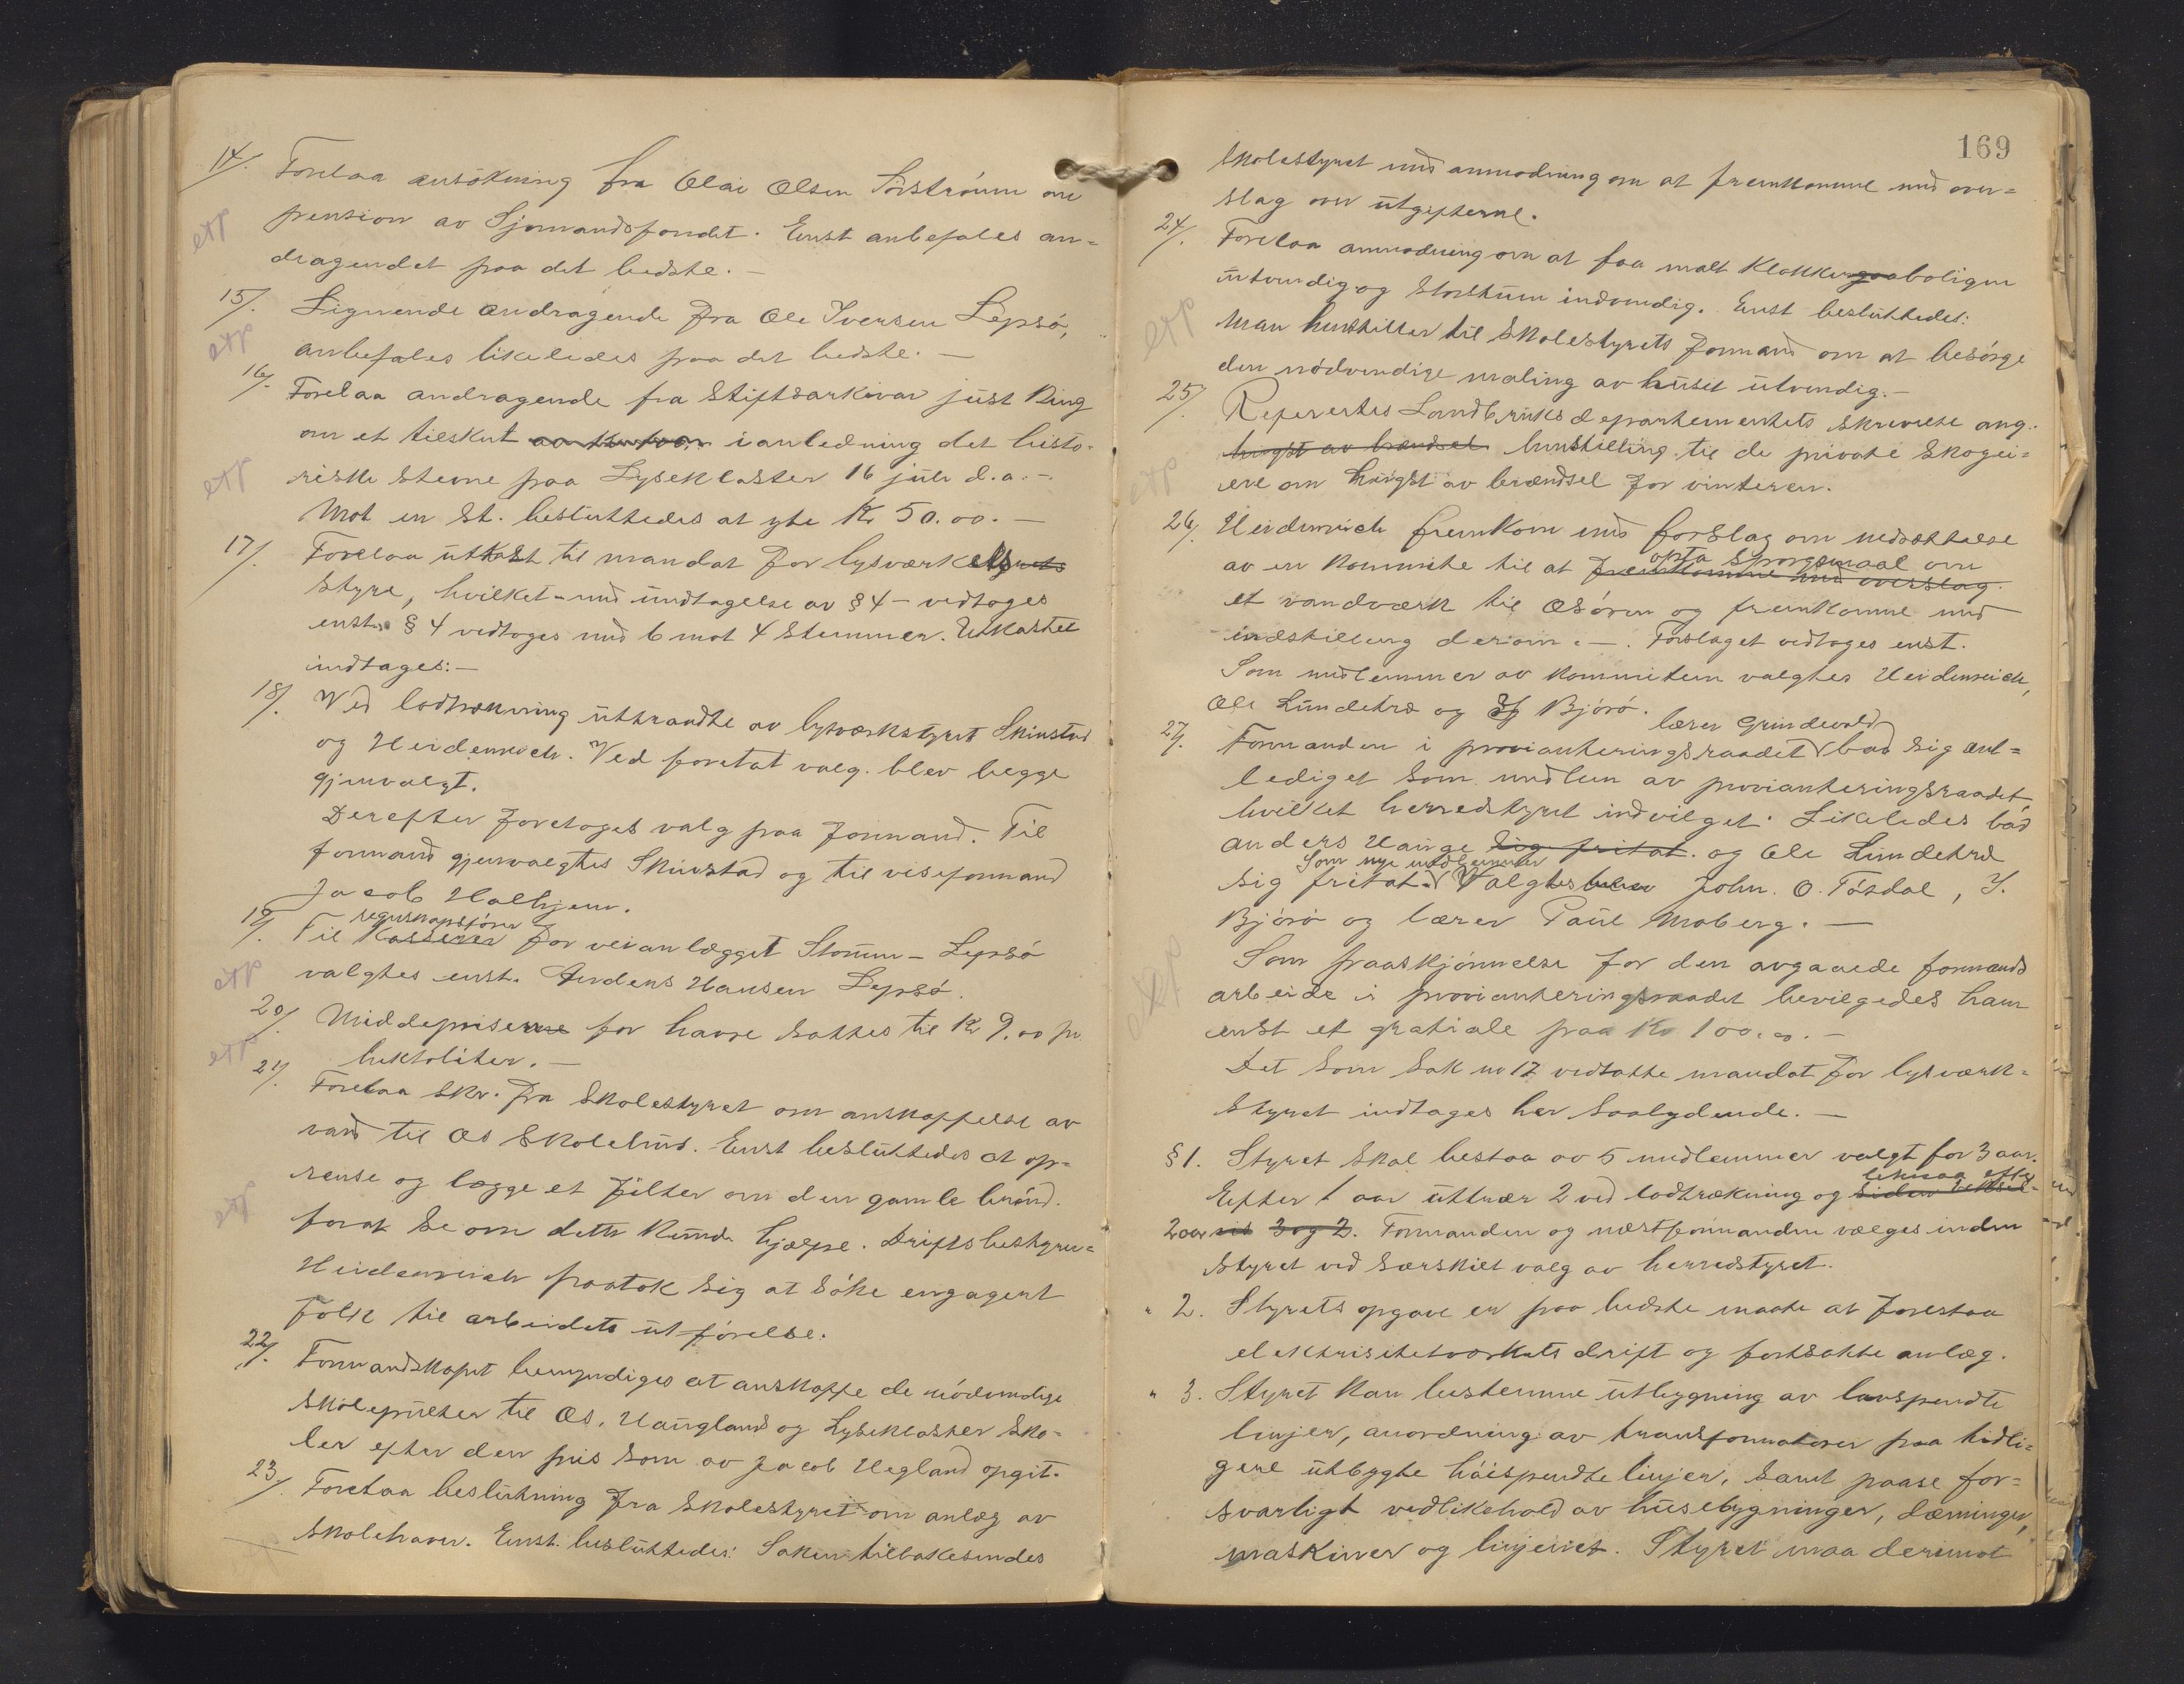 14/. Forelaa ansökning fra Olai Olsen Sörströnen om
etp
pension av Sjømandsfondet. Enst anbefales an=
dragendet paa det bedste. —
15/. Lignende andragende fra Ole Iversen Lepsö,
etp
anbefales likeledes paa det bedste. —
16/. Forelaa andragende fra Stiftsarkivar Just Bing
om et tilskut i anledning det histo-
etp
riske stevne paa Lyseklaster 16 juli d.a. —
Mot en st. besluttedes at yte Kr 50.00. —
17/. Forelaa utkast til mandat for lysværkets
styre, hvilket - med undtagelse av § 4 - vedtoges
enst. § 4 vedtoges med 6 mot 4 stemmer. Utkastet
indtages: —
18/. Ved lodtrækning uttraadte av lysværkstyret Skinstad
og Heidenreich. Ved foretat valg blev begge
gjenvalgt.
Derefter foretoges valg paa formand. Til
formand gjenvalgtes Skinstad og til viseformand
Jacob Halhjem.
regnskapsförer
19/. Til Kasserer for veianlægget Storum - Lepsö
etp
valgtes enst. Anders Hansen Lepsö.
20/. Middelpriserne for havre sættes til Kr 9.00 pr.
etp
hektoliter. —
21/. Forelaa skr. fra Skolestyret om anskaffelse av
vand til Os Skolehus. Enst besluttedes at op-
rense og lægge et filter om den gamle brönd
etp
forat se om dette kunde hjælpe. Driftsbestyrer
Heidenreich paatok sig at söke engagert
folk til arbeidets utförelse.
22/. Formandskapet bemyndiges at anskaffe de nödvendige
skolepulter til Os, Haugland og Lyseklaster sko-
ler efter den pris som av Jacob Hegland opgit.
23/. Forelaa beslutning fra Skolestyret om anlæg av
skolehaver. Enst. besluttedes: Saken tilbakesendes
169
Skolestyret med anmodning om at fremkomme med over=
slag over utgifterne.
24/. Forelaa anmodning om at faa malt Klokkerboligen
utvendig og storstuen indvendig. Enst besluttedes:
etp
Man henstiller til Skolestyrets formand om at besörge
den nödvendige maling av huset utvendig. —
25/. Refertes Landbruksdepartementets skrivelse ang.
hugst av brændsel henstilling til de private skogei=
etp
ere om hugst av brændsel for vinteren.
26/. Heidenreich fremkom med forslag om nedsættelse
opta spörgsmaal om
av en Kommite til at fremkomme med overslag
et vandværk til Osören og fremkomme med
indstilling derom. —. Forslaget vedtoges enst.
Som medlemmer av Kommiteen valgtes Heidenreich,
Ole Lundetræ og Bjórö.
lærer Grindevald
27/. Formanden i provianteringsraadet bad sig ent=
lediget som medlem av provianteringsraadet,
hvilket herredstyret indvilget. Likeledes bad
Anders Hauge sig fritat. og Ole Lundetræ
Som nye medlemmer
sig fritat. Valgtes John. O. Tösdal, J.
Björö og lærer Paul Moberg. —
etp
Som paaskjönnelse for den avgaaede formands
arbeide i provianteringsraadet bevilgedes ham
enst et gratiale paa Kr 100.00. —
Det som Sak nr 17 vedtatte mandat for lysværk=
styret indtages her saalydende. —
§ 1. Styret skal bestaa av 5 medlemmer valgt for 3 aar.
Efter 1 aar uttrær 2 ved lodtrækning og siden veksel-
3 og 2. Formanden og næstformanden vælges inden
styret ved særskilt valg av herredstyret.
" 2. Styrets opgave er paa bedste maate at forestaa
elektrisitetværkets drift og fortsatte anlæg.
" 3. Styret kan bestemme utbygning av lavspendte
linjer, anordning av transformatorer paa tidli=
gere utbygte höispendte linjer, samt paase for=
svarligt vedlikehold av husebygninger, dæmninger,
maskiner og linjenet. Styret maa derimot